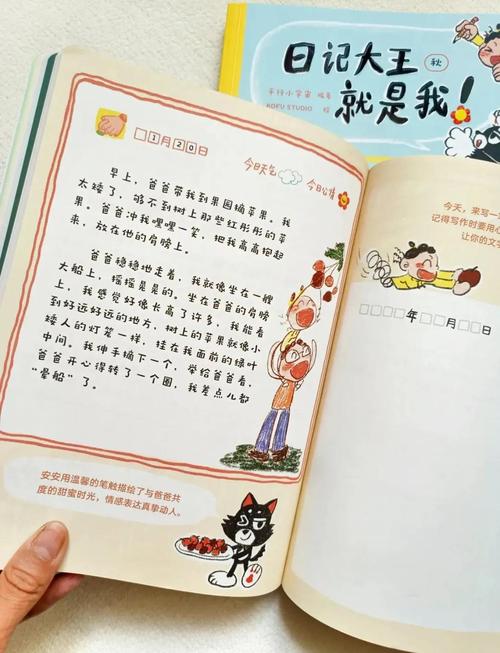 日记大王
秋
就是我!
半行小宇宙 编著
KOFU STUDIO 绘
□1月20日
今日天气
今日心情
早上，爸爸带我到果园摘苹果。我
太矮了，够不到树上那些红彤彤的苹
果。爸爸冲我嘿嘿一笑，把我高高抱起
来，放在他的肩膀上。
爸爸稳稳地走着，我就像坐在一艘
大船上，摇摇晃晃的。坐在爸爸的肩膀
上，我感觉好像长高了许多，我能看
到好远好远的地方，树上的苹果就像小
矮人的灯笼一样，挂在我面前的绿叶
中间。我伸手摘下一个，举给爸爸看，
爸爸开心得转了一个圈，我差点儿都
“晕船”了。
安安用温馨的笔触描绘了与爸爸共
度的甜蜜时光，情感表达真挚动人。
今天，来写一
记得写作时要用心
让你的文
□□□□年□□月□□日